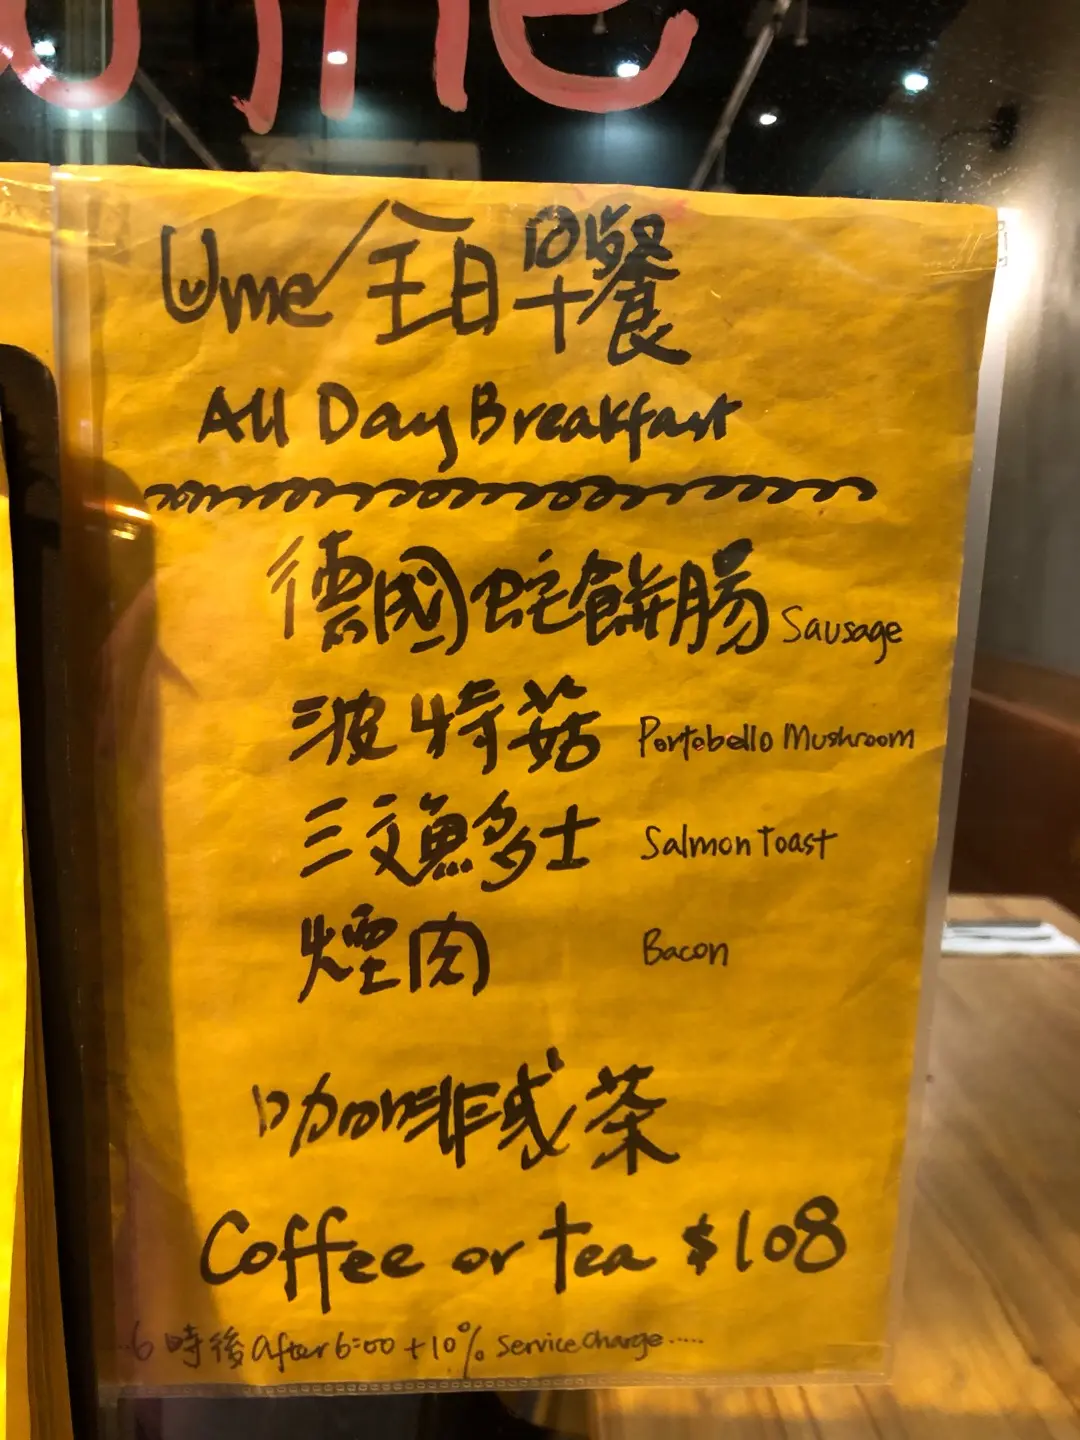 Ume 全日早餐
All Day Breakfast
德國蛇餅腸 Sausage
波特菇 Portobello Mushroom
三文魚多士 Salmon Toast
煙肉 Bacon
咖啡或茶
Coffee or tea $108
6時後 After 6:00 +10% Service Charge.....